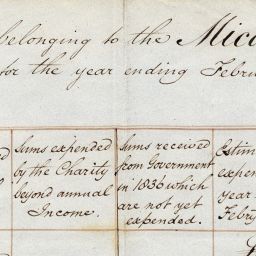 belonging to the Mico
for the year ending Febru
Sums expended
by the Charity
beyond annual
Income.
Sums received
from Government
in 1836 which
are not yet
expended.
Estim
expen
year
Febry